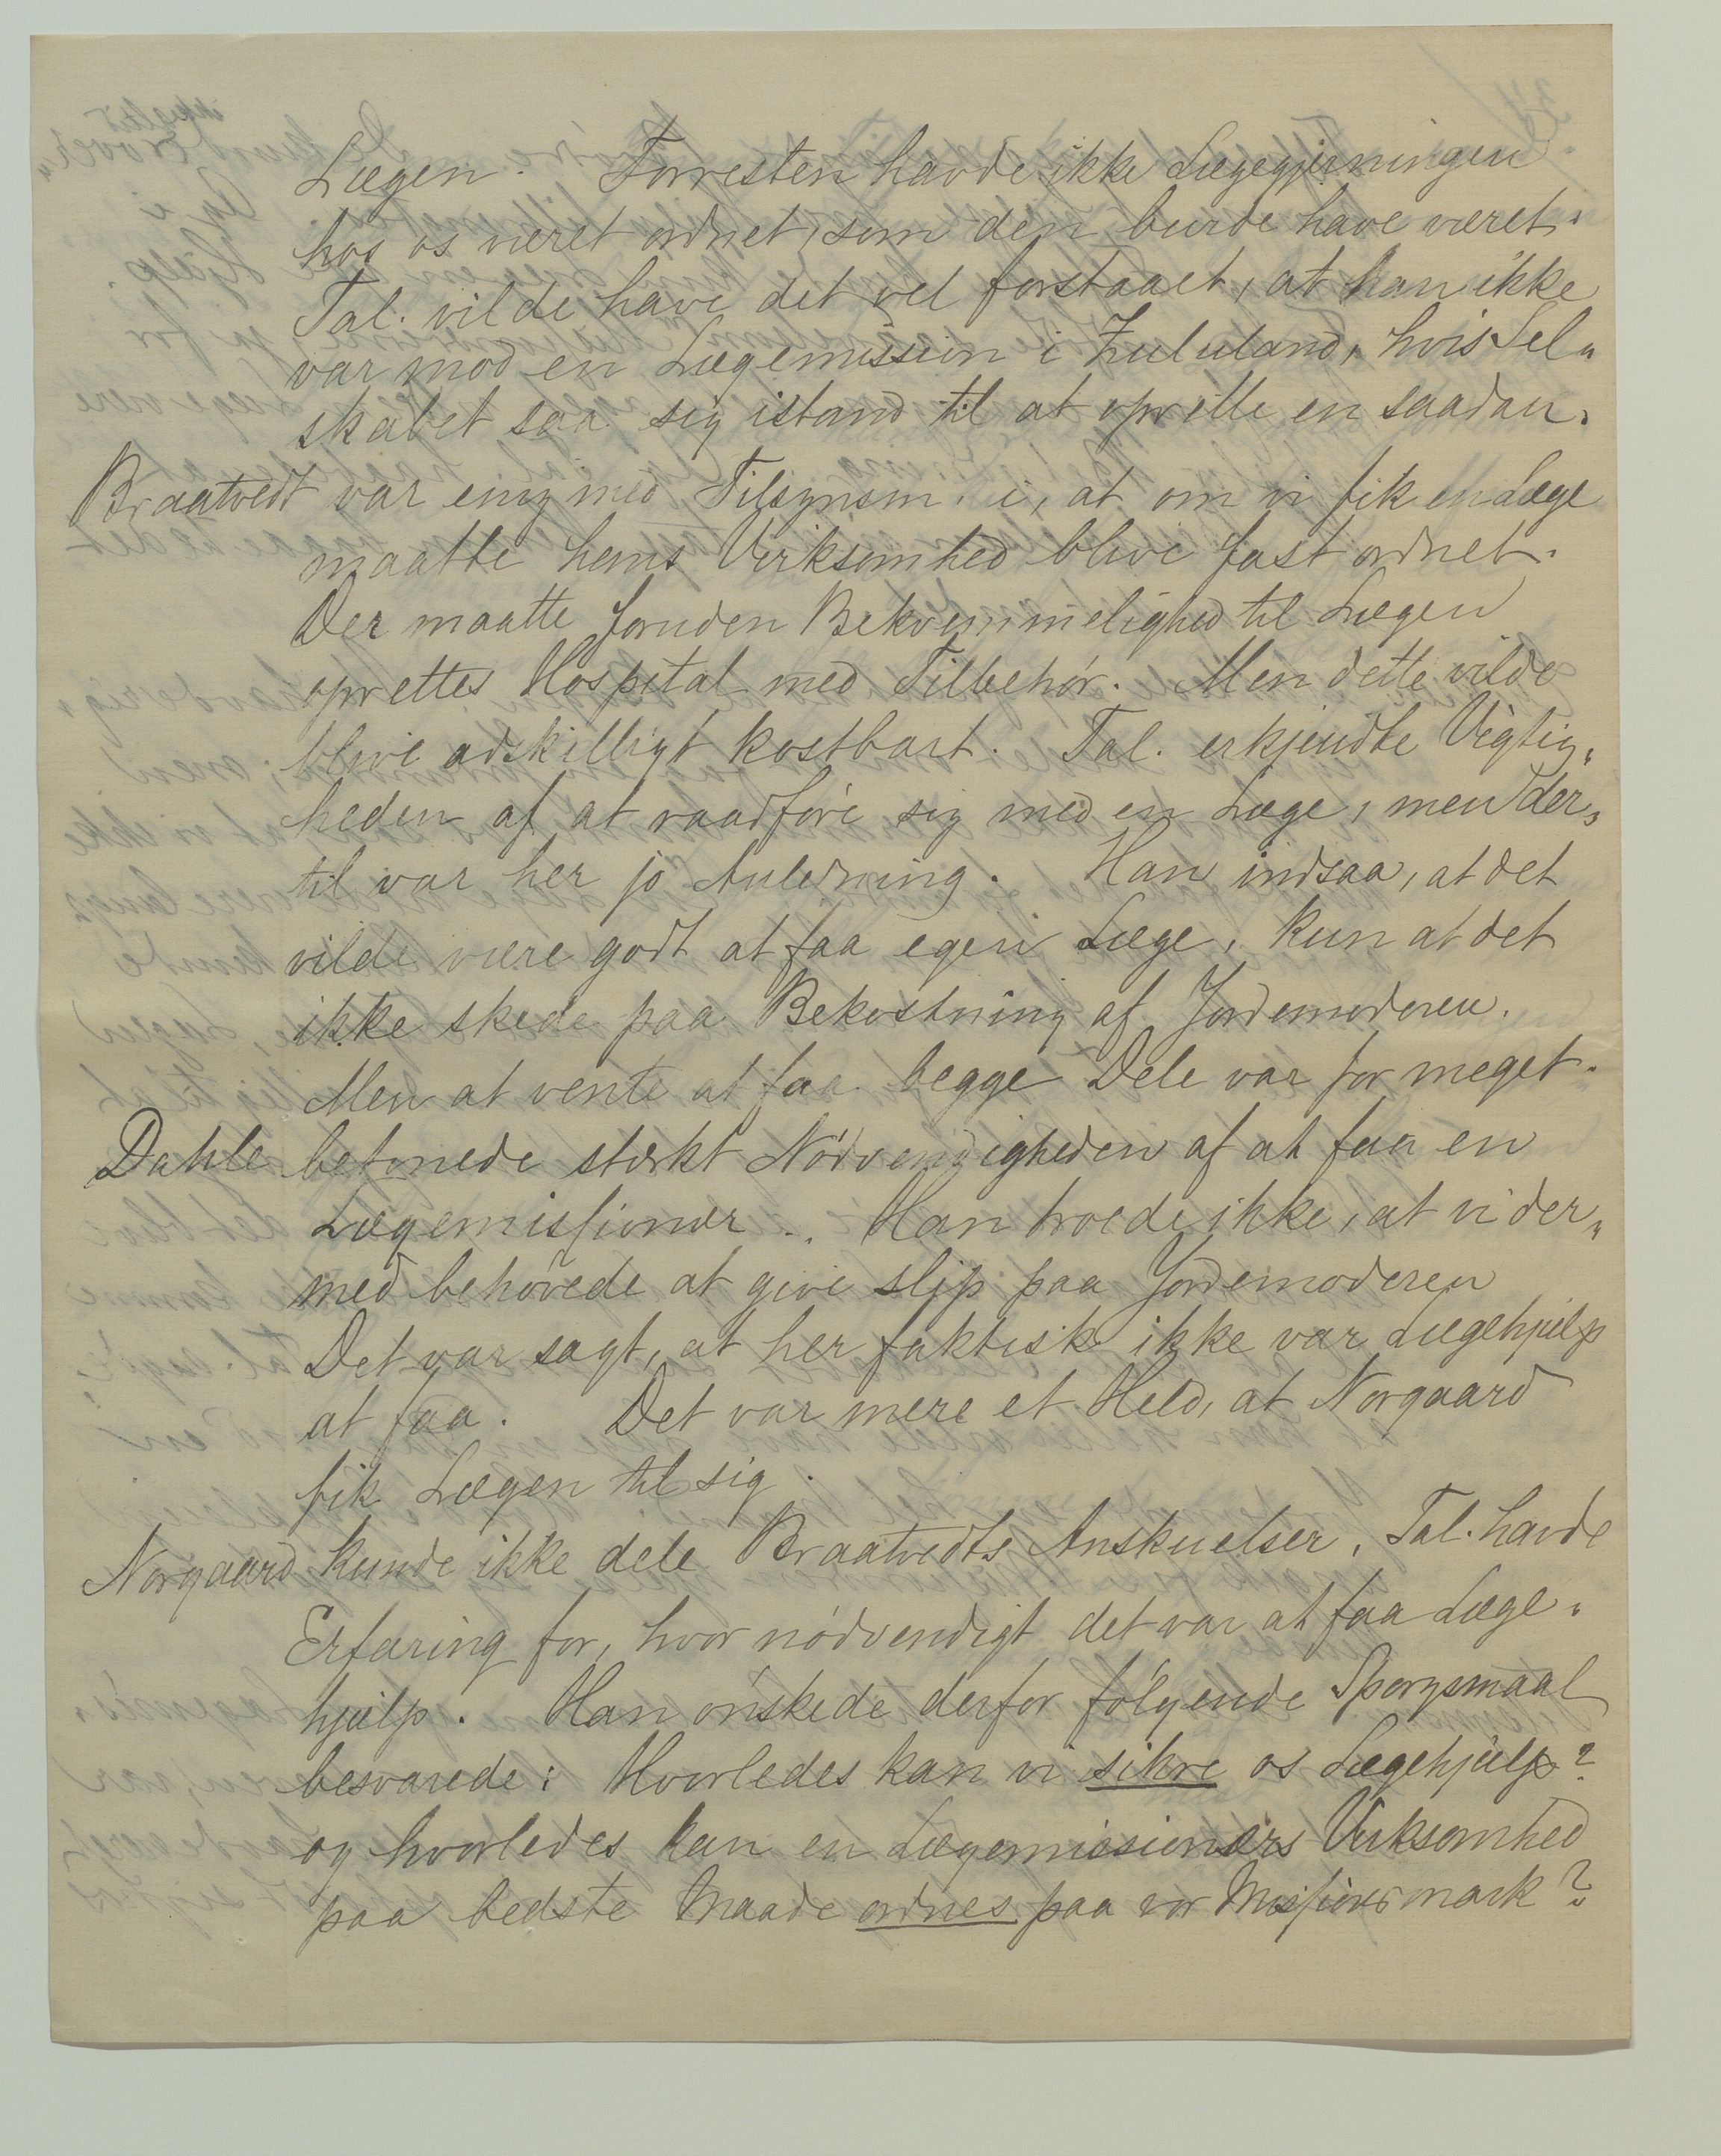 Lægen. Forresten havde ikke Lægegjerningen
hos os været ordnet, som den burde have været.
Tal. vilde have det vel forstaaet, at han ikke
var mod en Lægemission i Zululand, hvis Sel-
skabet saa sig istand til at oprette en saadan.
Braatvedt var enig med Tilsynsm. i, at om vi fik en Læge
maatte hans Virksomhed blive fast ordnet.
Der maatte foruden Bekvemmelighed til Lægen
oprettes Hospital med Tilbehör. Men dette vilde
blive adskilligt kostbart. Tal. erkjendte Vigtig-
heden af at raadföre sig med en Læge, men der-
til var her jo Anledning. Han indsaa, at det
vilde være godt at faa egen Læge, kun at det
ikke skede paa Bekostning af Jordemoderen.
Men at vente at faa begge Dele var for meget.
Dahle betonede stærkt Nödvendigheden af at faa en
Lægemissionær. Han troede ikke, at vi der-
med behövede at give slip paa Jordemoderen
Det var sagt, at her faktisk ikke var Lægehjælp
at faa. Det var mere et Held, at Norgaard
fik Lægen til sig.
Norgaard kunde ikke dele Braatvedts Anskuelser. Tal. havde
Erfaring for, hvor nödvendigt det var at faa Læge-
hjælp. Han önskede derfor fölgende Spørgsmaal
besvarede: Hvorledes kan vi sikre os Lægehjælp?
og hvorledes kan en Lægemissionærs Virksomhed
paa bedste Maade ordnes paa vor Missionsmark?